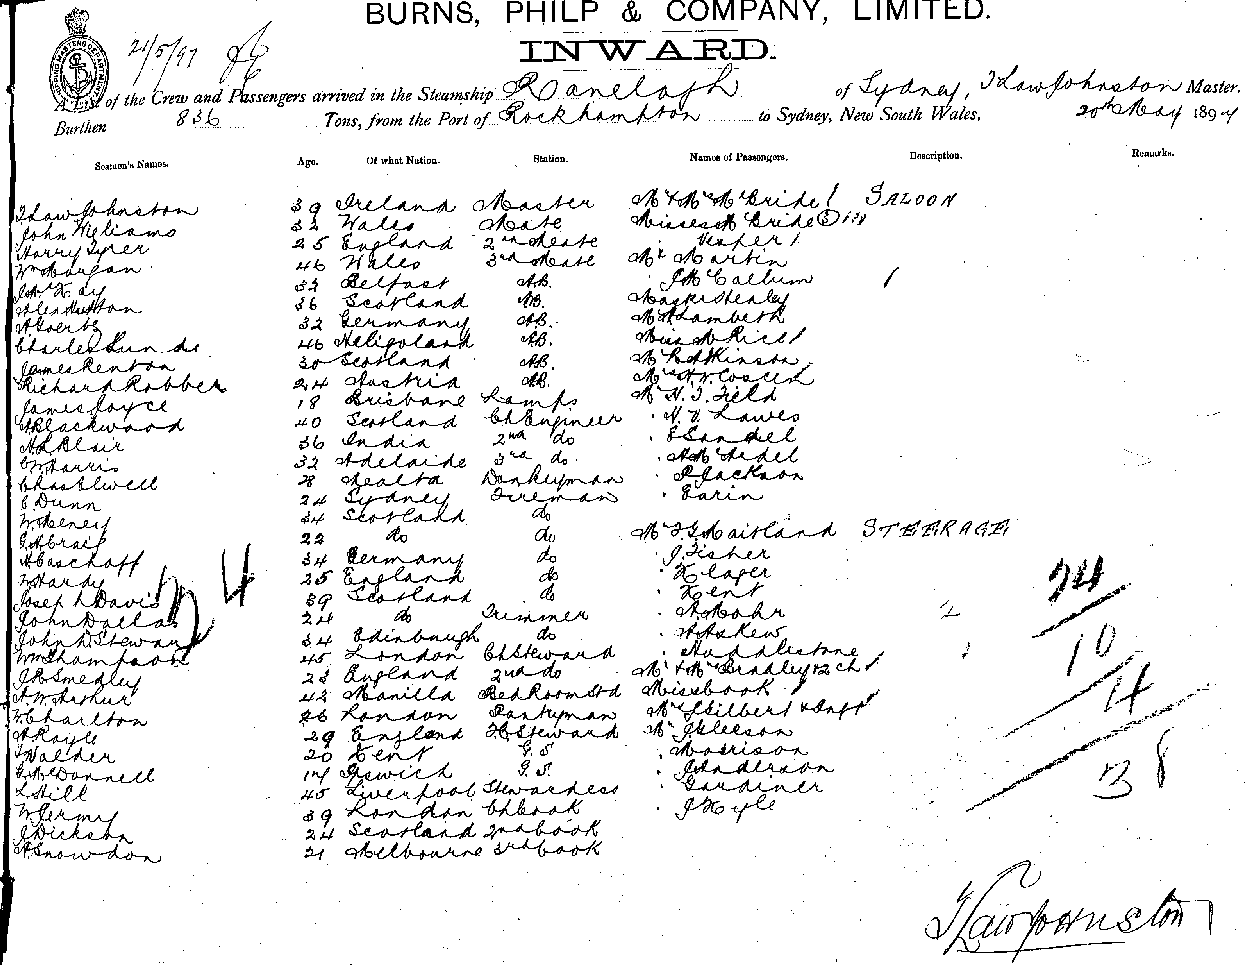 BURNS, PHILP & COMPANY, LIMITED.
INWARD.
21/5/97
A List of the Crew and Passengers arrived in the Steamship Ranelagh of Sydney, T Law Johnston Master.
Burthen 836 Tons, from the Port of Rockhampton to Sydney, New South Wales, 20th May 1897
Seamen's Names. Age. Of what Nation. Station. Names of Passengers. Description. Remarks.
T Law Johnston 39 Ireland Master Mr & Mrs McBride 1 SALOON
John Williams 32 Wales Mate Misses McBride (3)
Harry Tyrer 25 England 2nd Mate
Wm Morgan 46 Wales 3rd Mate Mr Martin
33 Belfast AB. J McCallum
36 Scotland AB.
A Goertz 32 Germany AB. Lambeth
Charles 46 Heligoland AB. Miss Rice
James Renton 30 Scotland AB. Atkinson
Richard Robber 24 Austria AB.
James Joyce 18 Brisbane Lamps Mr H. T. Field
A Blackwood 40 Scotland Ch Engineer Lawes
A L Blair 36 India 2nd do Sandel
C W Harris 32 Adelaide 3rd do
Chas Elwell 28 Malta Donkeyman Jackson
E Dunn 24 Sydney Fireman Earin
34 Scotland do
22 do do Mr F G Maitland STEERAGE
A Baschoff 34 Germany do J. Fisher
W Hardy 25 England do
Joseph Davis 39 Scotland do Kent
John Dallas 24 do Trimmer A Mohr
John A Stewart 34 Edinbough do A Askew
Wm Thompson 45 London Ch Steward Huddlestone
J R Smedley 23 England 2nd do Mr & Mrs Bradley & 2 ch
A. W. Arthur 42 Manilla Bed Room Std Miss Cook
W Charlton 26 London Pantryman Mrs Gilbert & Inft
A Royle 29 England Steward Mr J Gleeson
Walder 20 Kent G. S. Morrison
G McDonnell 17 Ipswich G. S. J Anderson
L Hill 45 Liverpool Stewardess Gardiner
W Jermy 39 London Ch Cook J Kyle
J Dickson 24 Scotland 2nd Cook
A Snowdon 21 Melbourne 3rd Cook
24
10
4
38
T Law Johnston